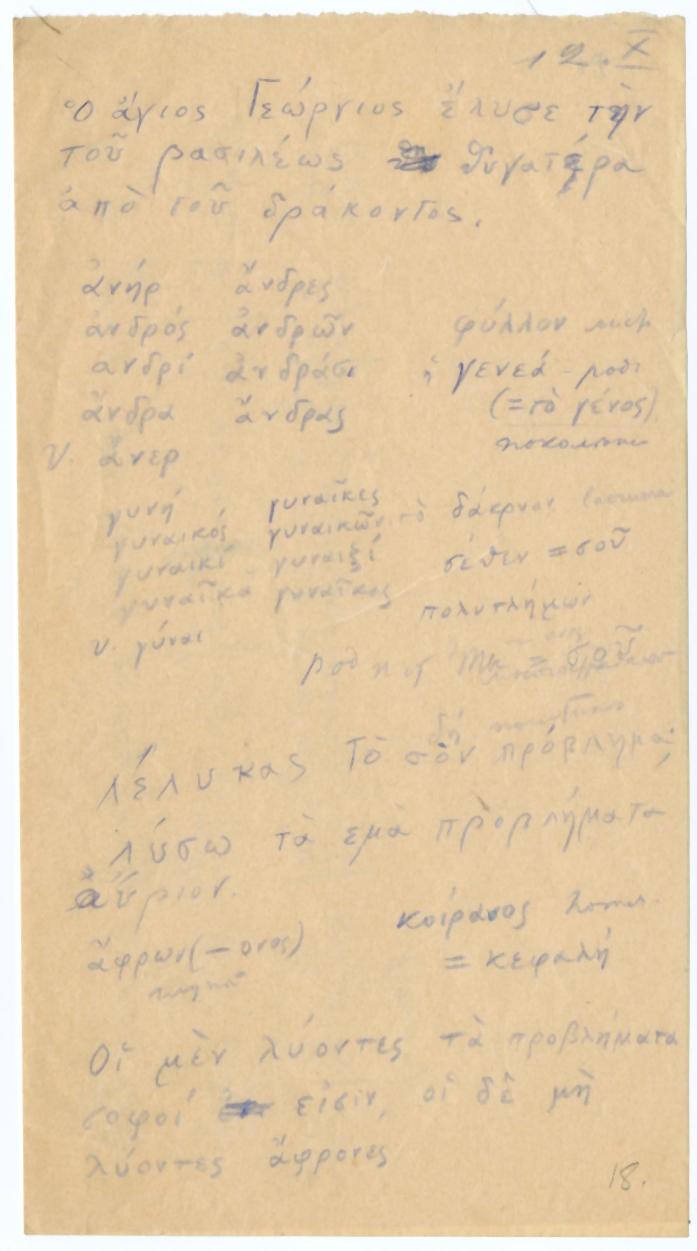 12. X
Ὁ ἅγιος Γεώργιος ἔλυσε τὴν
τοῦ βασιλέως θυγατέρα
ἀπὸ τοῦ δράκοντος.
ἀνήρ ἄνδρες
ἀνδρός ἀνδρῶν φύλλον
ανδρί ἀνδράσι ἡ γενεά
ἄνδρα ἄνδρας (=τὸ γένος)
V. ἄνερ
γυνή γυναῖκες
γυναικός γυναικῶν τὸ δάκρυον
γυναικί γυναιξί σέθεν = σοῦ
γυναῖκα γυναῖκας πολυτλήμων
V. γύναι
δή
Λέλυκας τὸ σὸν πρόβλημα;
Λύσω τὰ εμὰ προβλήματα
αὔριον.
ἄφρων (–ονος) κοίρανος
= κεφαλή
Οἱ μὲν λύοντες τὰ προβλήματα
σοφοί εἰσιν, οἱ δὲ μὴ
λύοντες ἄφρονες
18.